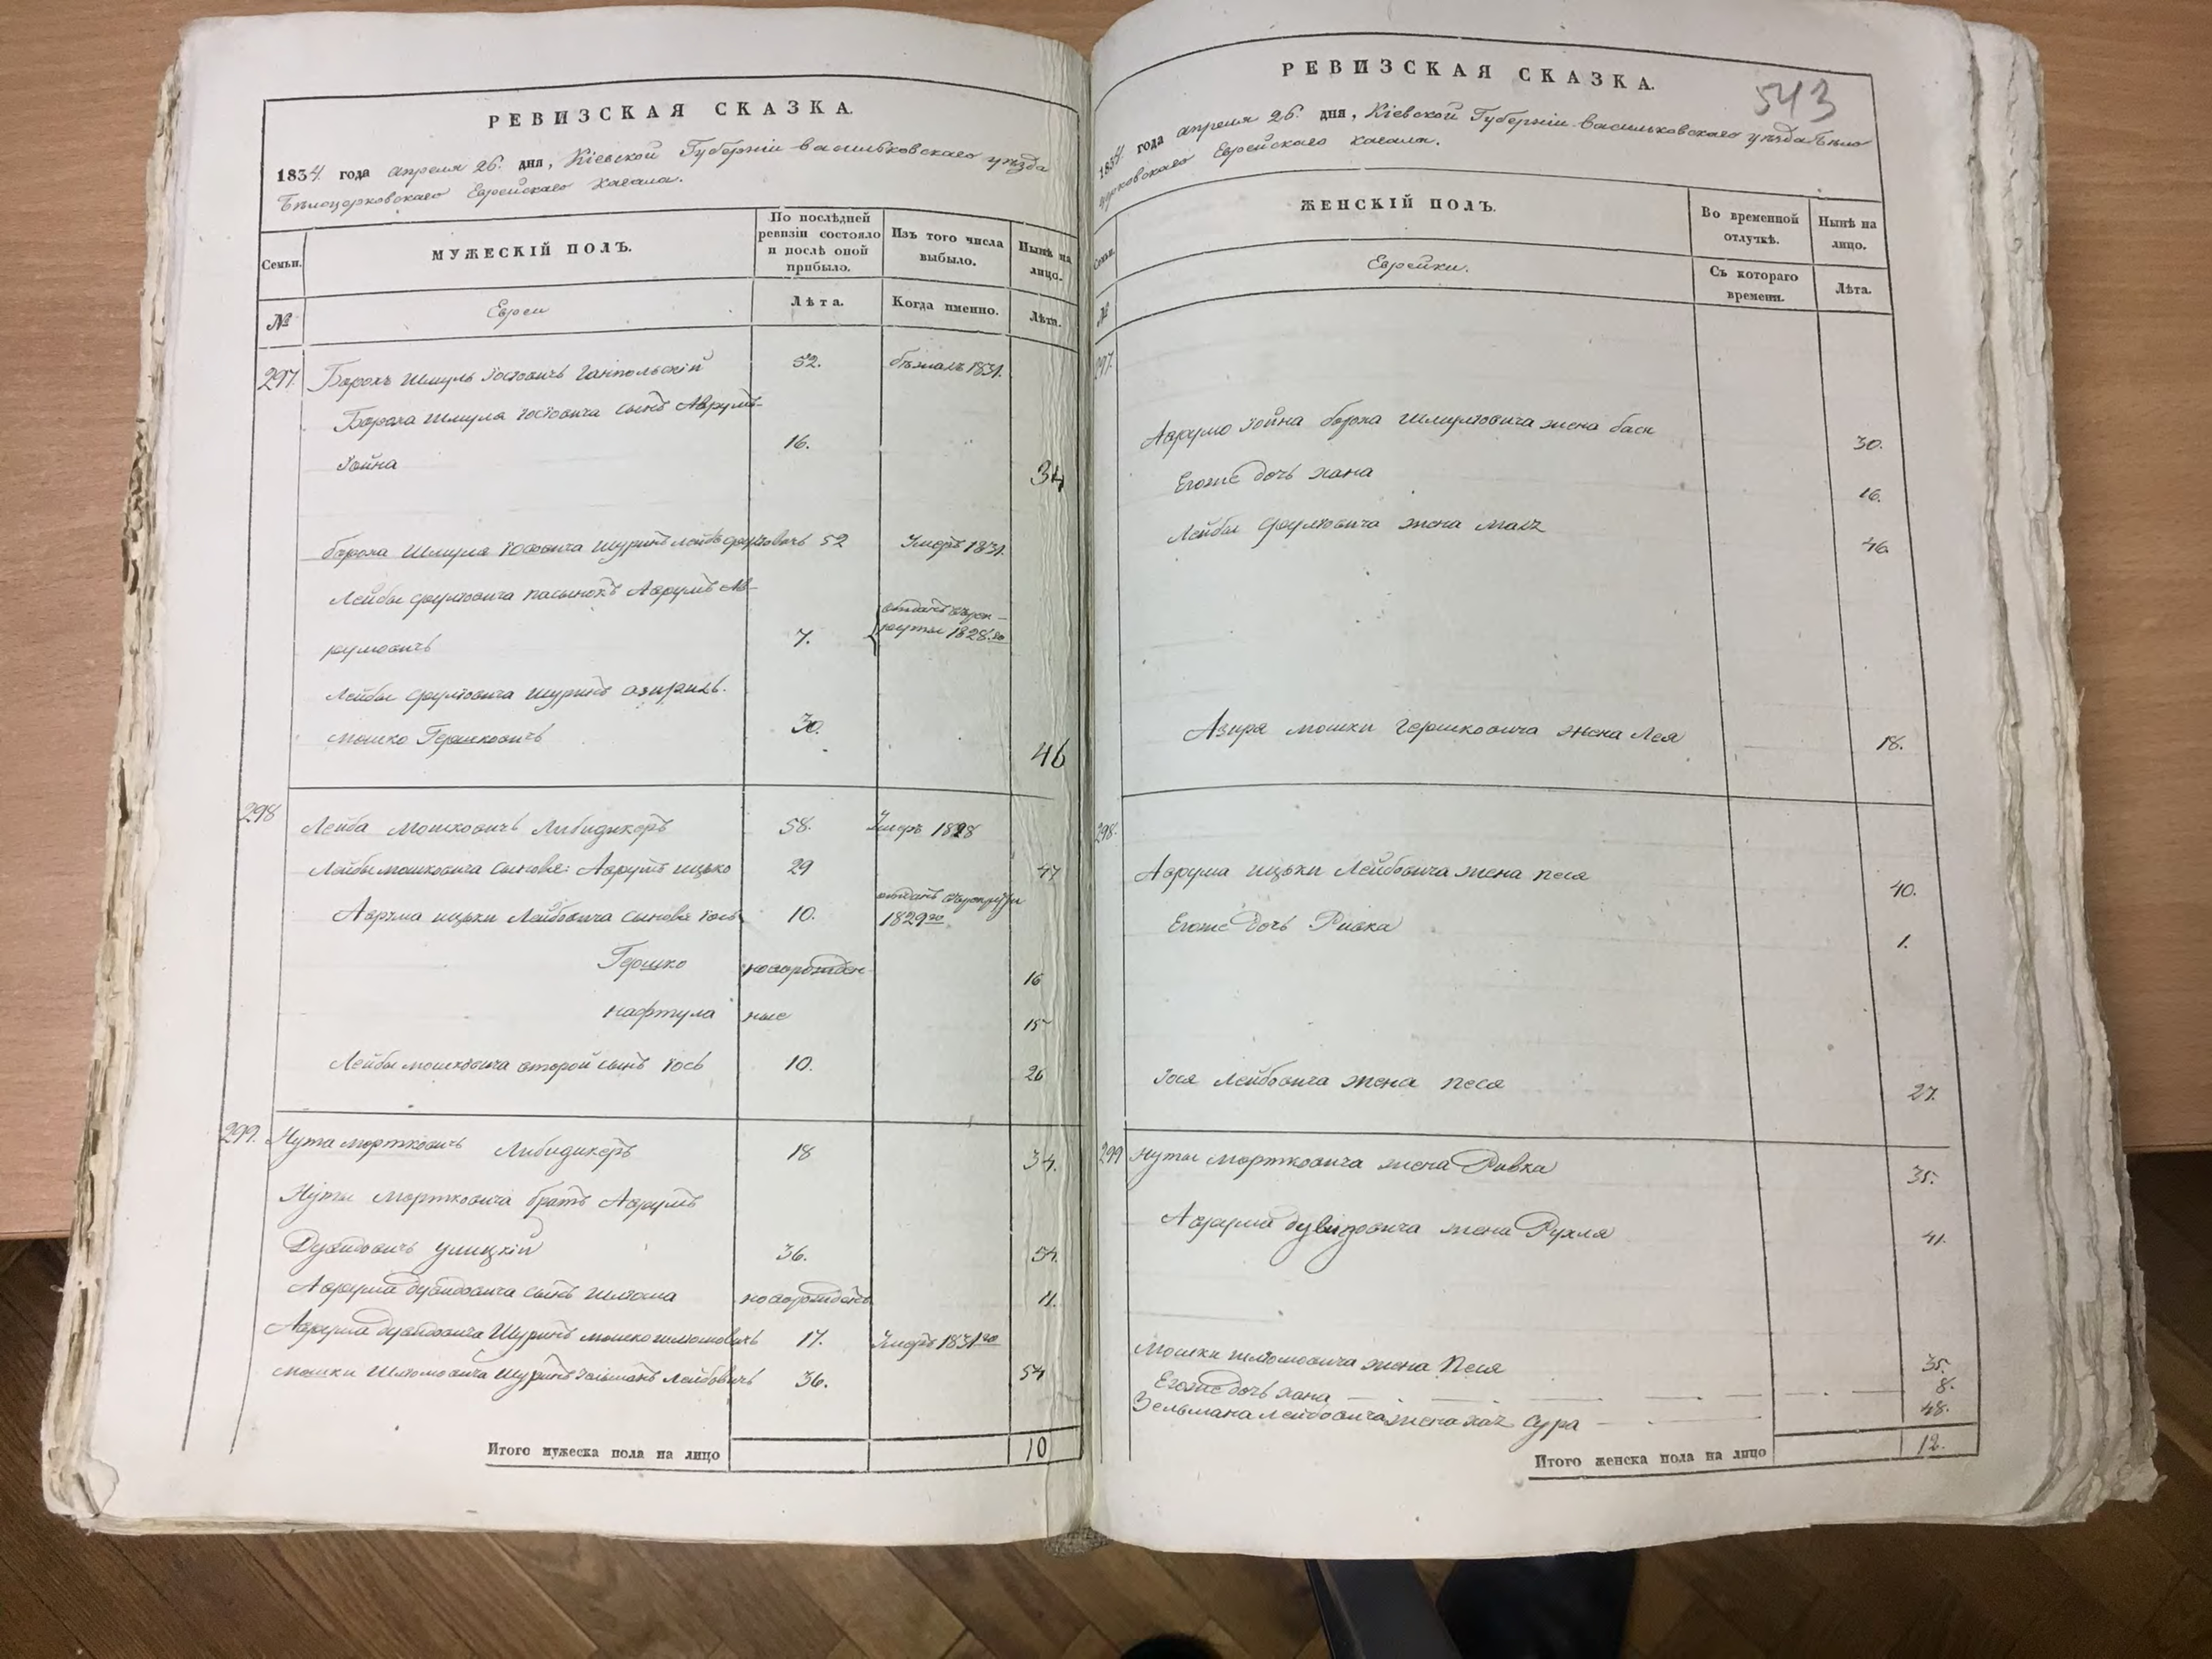 РЕВИЗСКАЯ СКАЗКА.
1834 года апреля 26. дня, Кіевской Губерніи Васильковскаго уѣзда
Бѣлоцерковскаго Еврейскаго Кагала.
Семьи.
МУЖЕСКІЙ ПОЛЪ.
По послѣдней ревизіи состояло и послѣ оной прибыло.
Изъ того числа выбыло.
Нынѣ на лицо.
№
Евреи
Лѣта.
Когда именно.
Лѣта.
297. Борохъ Шмуль Іосіовичъ Ганпольскій 52. бѣжалъ 1831.
Бороха Шмуля Іосіовича сынъ Аврумъ-
Іойна 16. 34
бороха Шмуля Іосіовича шуринъ лейба 52 Умеръ 1831.
Лейбы пасынокъ Аврумъ Ав-
румовичъ 7. отданъ въ рек-
руты 1828.го
Лейбы шуринъ
мошко Гершковичъ 30. 46
298 Лейба Мошковичъ Либидикеръ 58. Умеръ 1828
Лейбы мошковича сыновья: Аврумъ ицько 29 47
Аврума ицьки Лейбовича сыновя Іось 10. отданъ в рекруты
1829го
Гершко новорожден- 16
нафтула ные 15
Лейбы мошковича второй сынъ Іось 10. 26
299. Нута мортковичъ Либидикеръ 18 34.
Нуты Мортковича братъ Аврумъ
Дувидовичъ улицкій 36. 54.
Аврума дувидовича сынъ шліома новорожденъ 11.
Аврума дувидовича Шуринъ мошко шліомовичъ 17. Умеръ 1831го
мошки Шліомовича Шуринъ Зельманъ Лейбовичъ 36. 54
Итого мужеска пола на лицо 10
РЕВИЗСКАЯ СКАЗКА.
543
1834 года апреля 26. дня, Кіевской Губерніи Васильковскаго уѣзда Бѣло
церковскаго Еврейскаго кагала.
Семьи.
ЖЕНСКІЙ ПОЛЪ.
Во временной отлучкѣ.
Нынѣ на лицо.
№
Еврейки.
Съ котораго времени.
Лѣта.
297.
Аврумо Іойна бороха Шмулиовича жена бася 30.
Егоже дочь хана 16.
Лейбы жена 46
Азира мошки гершковича жена Лея 18.
298.
Аврума ицьки Лейбовича жена песя 40.
Егоже дочь Ривка 1.
Іося Лейбовича жена песя 27.
299 Нуты Мортковича жена Ривка 35.
Аврума дувидовича жена Рухля 41.
Мошки шліомовича жена Песя 35.
Егоже дочь хана 8.
Зельмана лейбовича жена Сура 48.
Итого женска пола на лицо 12.